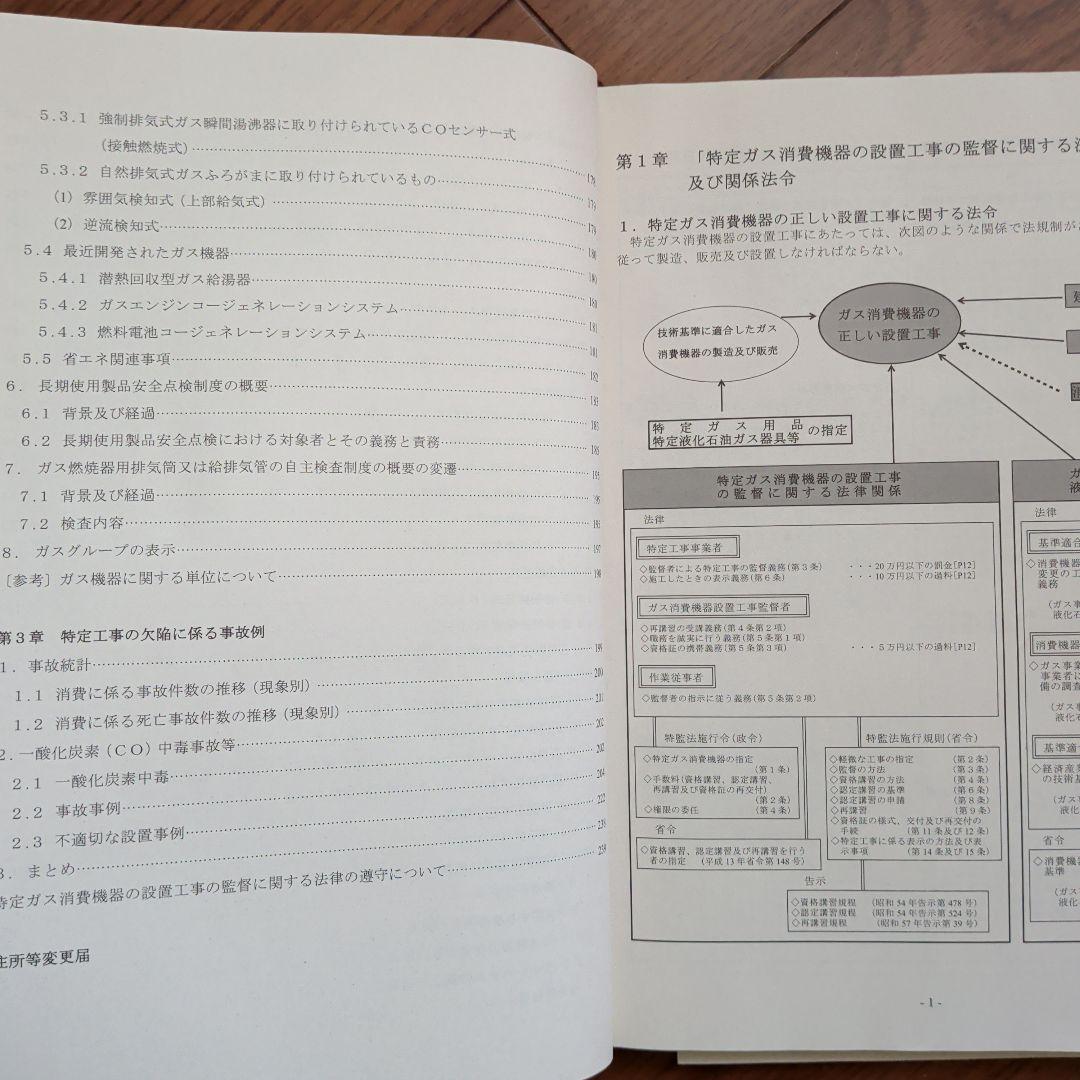 5.3.1 強制排気式ガス瞬間湯沸器に取り付けられているCOセンサー式
(接触燃焼式)……178
5.3.2 自然排気式ガスふろがまに取り付けられているもの……179
(1) 雰囲気検知式(上部給気式)……179
(2) 逆流検知式……180
5.4 最近開発されたガス機器……180
5.4.1 潜熱回収型ガス給湯器……181
5.4.2 ガスエンジンコージェネレーションシステム……181
5.4.3 燃料電池コージェネレーションシステム……181
5.5 省エネ関連事項……182
6. 長期使用製品安全点検制度の概要……183
6.1 背景及び経過……183
6.2 長期使用製品安全点検における対象者とその義務と責務……185
7. ガス燃焼器用排気筒又は給排気管の自主検査制度の概要の変遷……195
7.1 背景及び経過……195
7.2 検査内容……195
8. ガスグループの表示……197
[参考] ガス機器に関する単位について……198
第3章 特定工事の欠陥に係る事故例
1. 事故統計……199
1.1 消費に係る事故件数の推移(現象別)……200
1.2 消費に係る死亡事故件数の推移(現象別)……211
2. 一酸化炭素(CO)中毒事故等……202
2.1 一酸化炭素中毒……202
2.2 事故事例……204
2.3 不適切な設置事例……222
3. まとめ……238
特定ガス消費機器の設置工事の監督に関する法律の遵守について……239
住所等変更届
第1章 「特定ガス消費機器の設置工事の監督に関する
及び関係法令
1. 特定ガス消費機器の正しい設置工事に関する法令
特定ガス消費機器の設置工事にあたっては、次図のような関係で法規制が
従って製造、販売及び設置しなければならない。
技術基準に適合したガス
消費機器の製造及び販売
ガス消費機器の
正しい設置工事
特定ガス用品
特定液化石油ガス器具等
の指定
特定ガス消費機器の設置工事
の監督に関する法律関係
法律
特定工事事業者
◇監督者による特定工事の監督義務(第3条) ・・・20万円以下の罰金[P12]
◇施工したときの表示義務(第6条) ・・・10万円以下の過料[P12]
ガス消費機器設置工事監督者
◇再講習の受講義務(第4条第2項)
◇職務を誠実に行う義務(第5条第1項)
◇資格証の携帯義務(第5条第3項) ・・・5万円以下の過料[P12]
作業従事者
◇監督者の指示に従う義務(第5条第2項)
特監法施行令(政令)
◇特定ガス消費機器の指定
(第1条)
◇手数料(資格講習、認定講習、
再講習及び資格証の再交付)
(第2条)
◇権限の委任 (第4条)
省令
◇資格講習、認定講習及び再講習を行う
者の指定 (平成13年省令第148号)
特監法施行規則(省令)
◇軽微な工事の指定 (第2条)
◇監督の方法 (第3条)
◇資格講習の方法 (第4条)
◇認定講習の基準 (第6条)
◇認定講習の申請 (第8条)
◇再講習 (第9条)
◇資格証の様式、交付及び再交付の
手続 (第11条及び12条)
◇特定工事に係る表示の方法及び表
示事項 (第14条及び15条)
告示
◇資格講習規程 (昭和54年告示第478号)
◇認定講習規程 (昭和54年告示第524号)
◇再講習規程 (昭和57年告示第39号)
ガ
液
法律
基準適合
◇消費機器
変更の工
義務
(ガス事
液化石
消費機器
◇ガス事業
事業者に
備の調査
(ガス事
液化石
基準適
◇経済産業
の技術基
(ガス事
液化
省令
◇消費機
基準
(ガス
液化石
- 1 -